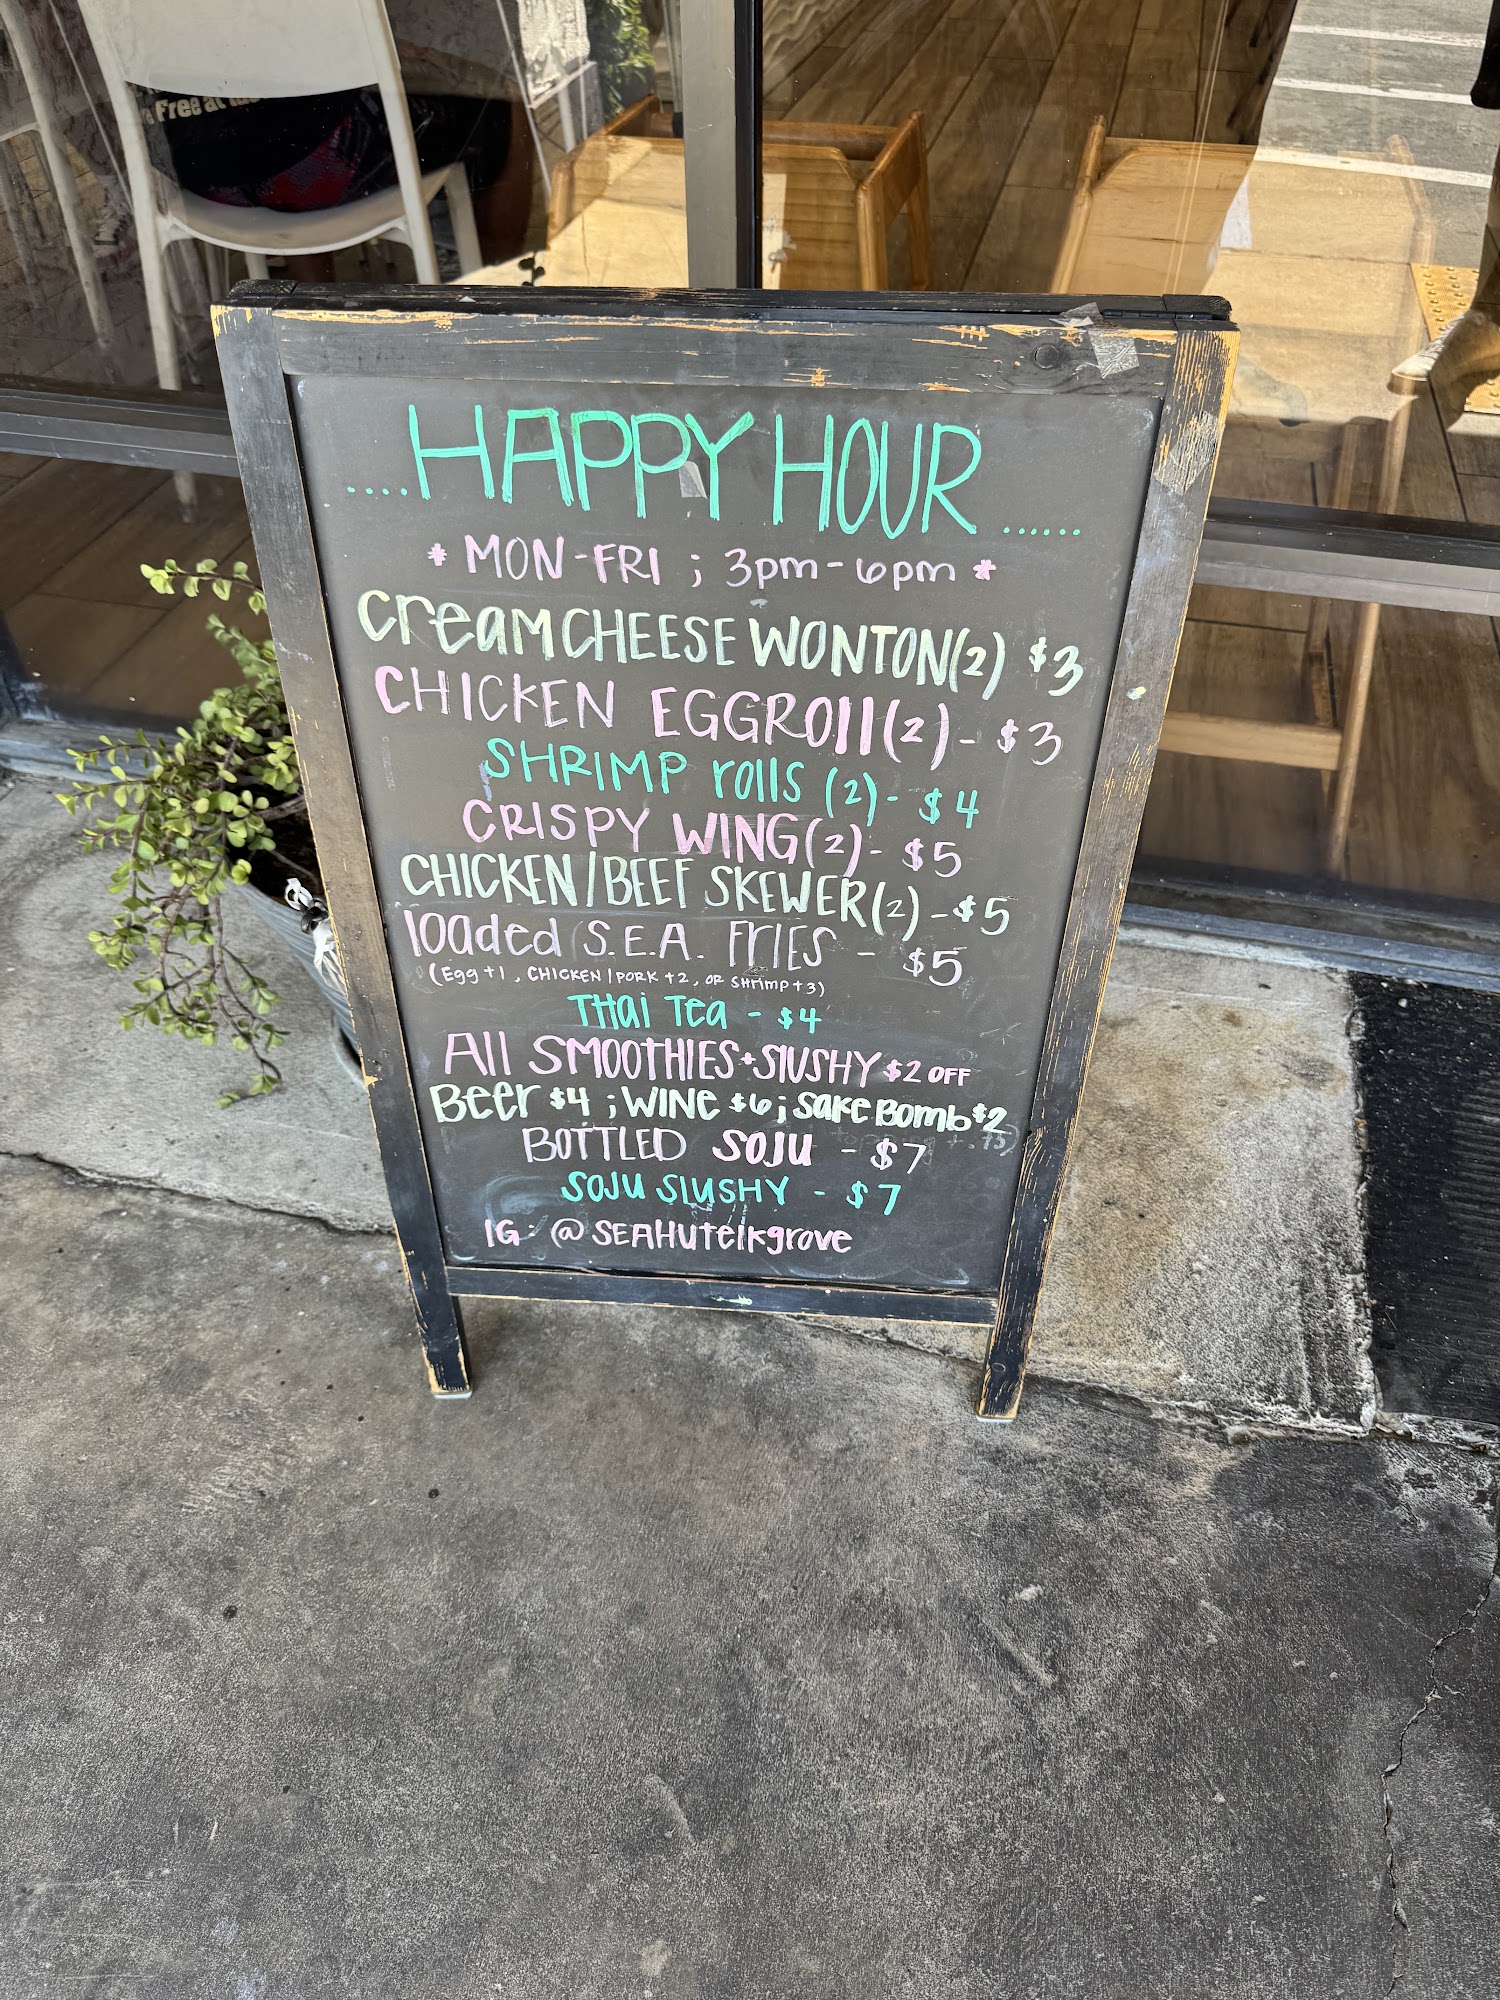 Free at
....HAPPY HOUR......
* MON-FRI ; 3pm-6pm *
creamCHEESE WONTON(2) $3
CHICKEN EGGROll(2)- $3
SHRIMP rolls (2)- $4
CRISPY WING(2)- $5
CHICKEN/BEEF SKEWER(2)-$5
loaded S.E.A. FRIES - $5
(Egg+1, CHICKEN/PORK+2, OR SHrimp+3)
THai Tea - $4
All SMOOTHIES+SlUSHY $2 OFF
Beer $4 ; WINE $6 ; Sake Bomb $2
BOTTLED SOJU - $7
SOJU SlUSHY - $7
IG: @SEAHUTelkgrove